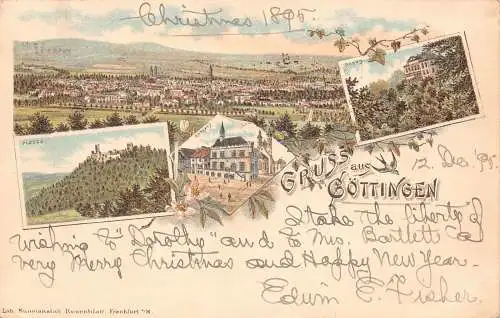 Christmas 1895.
PLESSE.
GRUSS aus GÖTTINGEN
12. Dec. '95.
I take the liberty of
wishing to "Dorothy" and to Mrs. Bartlett a
very Merry Christmas and Happy New Year.
Edwin Fisher.
Lith. Kunstanstalt Rosenblatt, Frankfurt a/M.